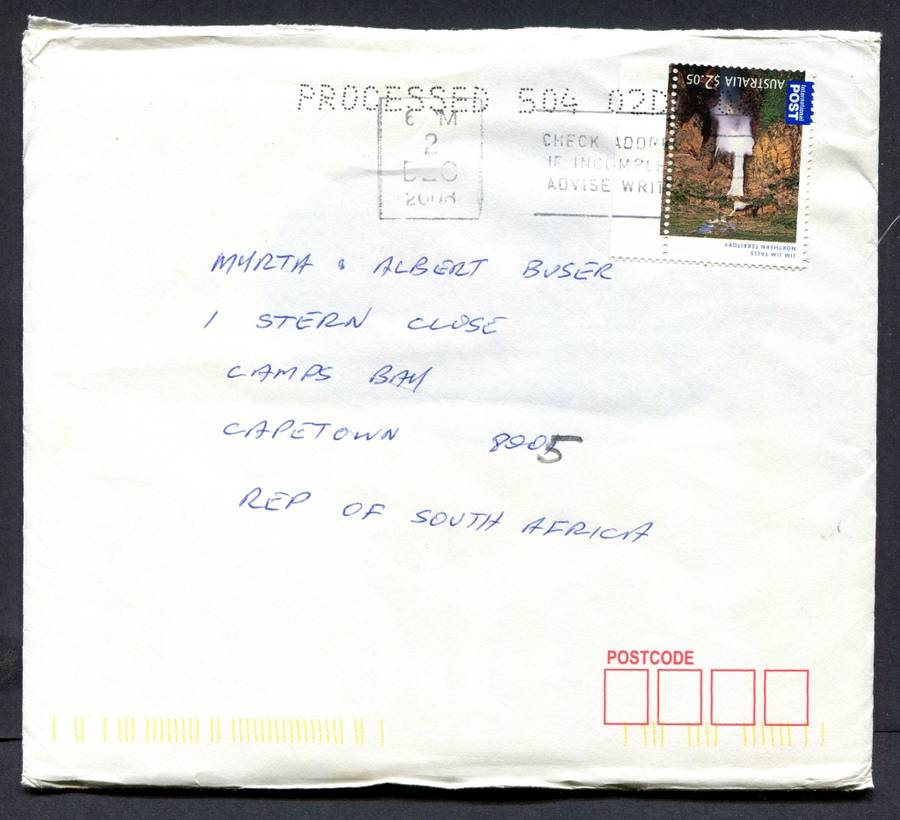 PROCESSED 504 02D
6 PM
2
DEC
2008
CHECK ADDR
IF INCOMPLE
ADVISE WRIT
AUSTRALIA $2.05
International
POST
JIM JIM FALLS
NORTHERN TERRITORY
MYRTA & ALBERT BUSER
1 STERN CLOSE
CAMPS BAY
CAPETOWN 8005
REP OF SOUTH AFRICA
POSTCODE